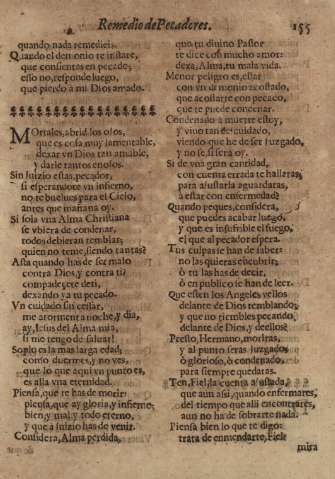 Remedio de Pecadores. 155
quando nada remedies.
Quando el demonio te instare,
que consientas en pecado,
esso no, responde luego,
que pierdo a mi Dios amado.
Mortales, abrid los ojos,
que es cosa muy lamentable,
dexar vn Dios tan amable,
y darle tantos enojos.
Sin juizio estàs, pecador,
si esperandote vn infierno,
no te buelues para el Cielo,
antes que mañana oy.
Si sola vna Alma Christiana
se vbiera de condenar,
todos debieran temblar,
quien no teme, siendo tantas?
Asta quando has de ser malo
contra Dios, y contra ti?
compadecete de ti,
dexando ya tu pecado.
Vn cuidado sin cessar,
me atormenta noche, y dia,
ay, Iesus del Alma mia,
si me tengo de saluar!
Soplo es la mas larga edad,
como duermes, y no ves,
que lo que aqui vn punto es,
es alla vna eternidad.
Piensa, que te has de morir:
piensa, que ay gloria, y infierno,
bien, y mal, y todo eterno,
y que a juizio has de venir.
Considera, Alma perdida,
que tu diuino Pastor
te dice con mucho amor:
dexa, Alma, tu mala vida.
Menor peligro es, estar
con vn demonio acostado,
que acostarte con pecado,
que te puede condenar.
Condenado a muerte estoy,
y viuo tan descuidado,
viendo que he de ser Iuzgado,
y no se, si serà oy.
Si de vna gran cantidad,
con cuenta errada te hallaras,
para ajustarla aguardaras,
à estar con enfermedad?
Quando peques, considera,
que puedes acabar luego,
y que es insufrible el fuego,
el que al pecador espera.
Tus culpas se han de saber:
no las quieras encubrir,
ò tu las has de decir,
ò en publico se han de leer.
Que esten los Angeles vellos
delante de Dios temblando,
y que no tiembles pecando,
delante de Dios, y de ellos?
Presto, Hermano, moriras,
y al punto seras Iuzgado:
ò glorioso, ò condenado,
para siempre quedaras.
Ten, Fiel, la cuenta ajustada,
que aun assi, quando enfermares,
del tiempo que alli encontrares,
aun no ha de sobrarte nada.
Piensa bien lo que te digo:
trata de enmendarte, Fiel:
mira